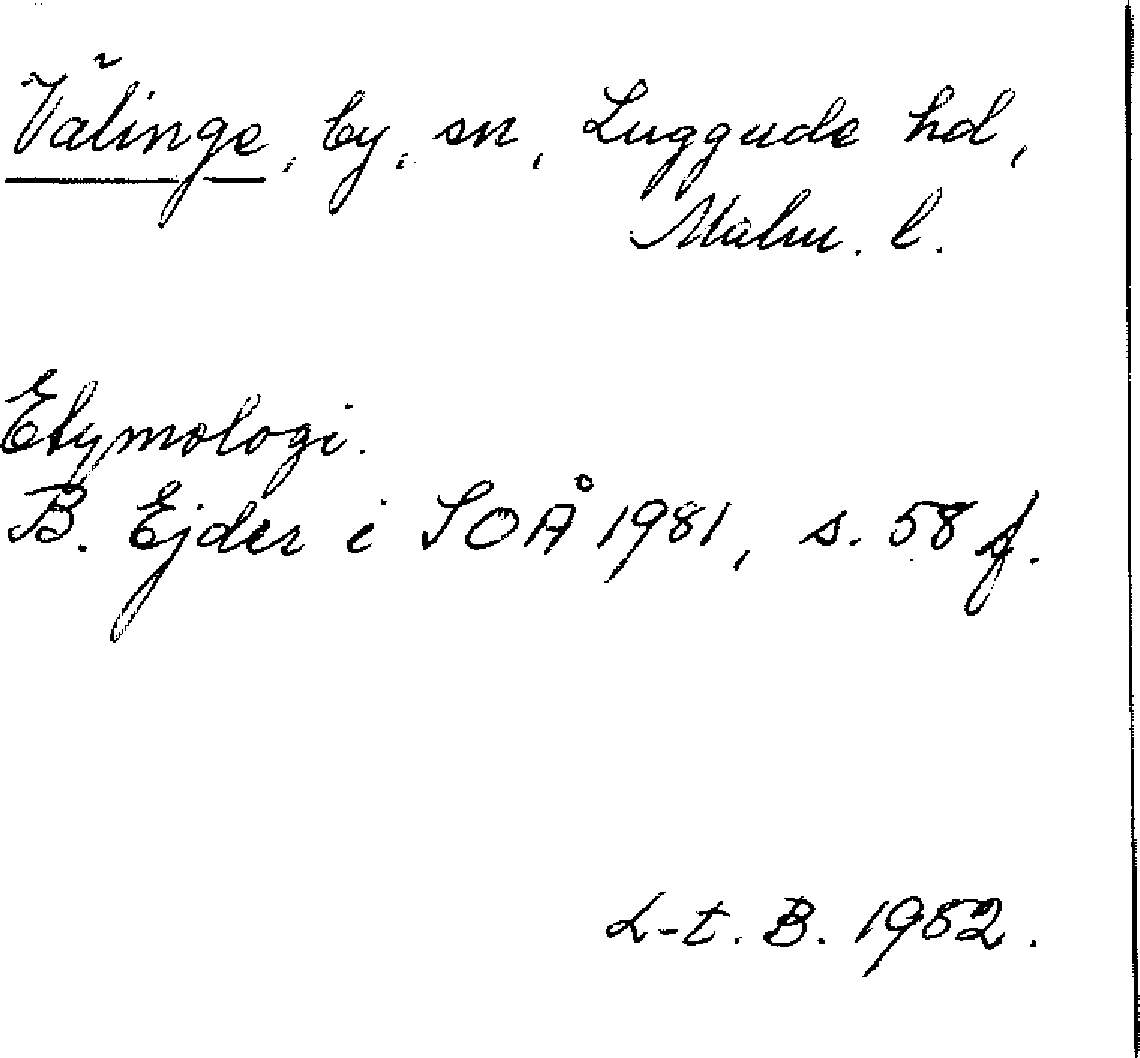 Välinge, by, sn, Luggude hd,
Malm. l.
Etymologi.
B. Ejder i SOÅ 1981, s. 58 f.
L-t. B. 1982.